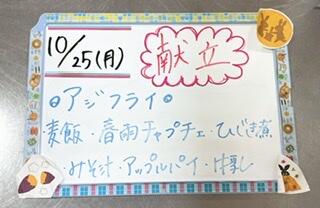 10/25(月)
献立
◎アジフライ◎
麦飯・春雨チャプチェ・ひじき煮
みそ汁・アップルパイ・牛乳